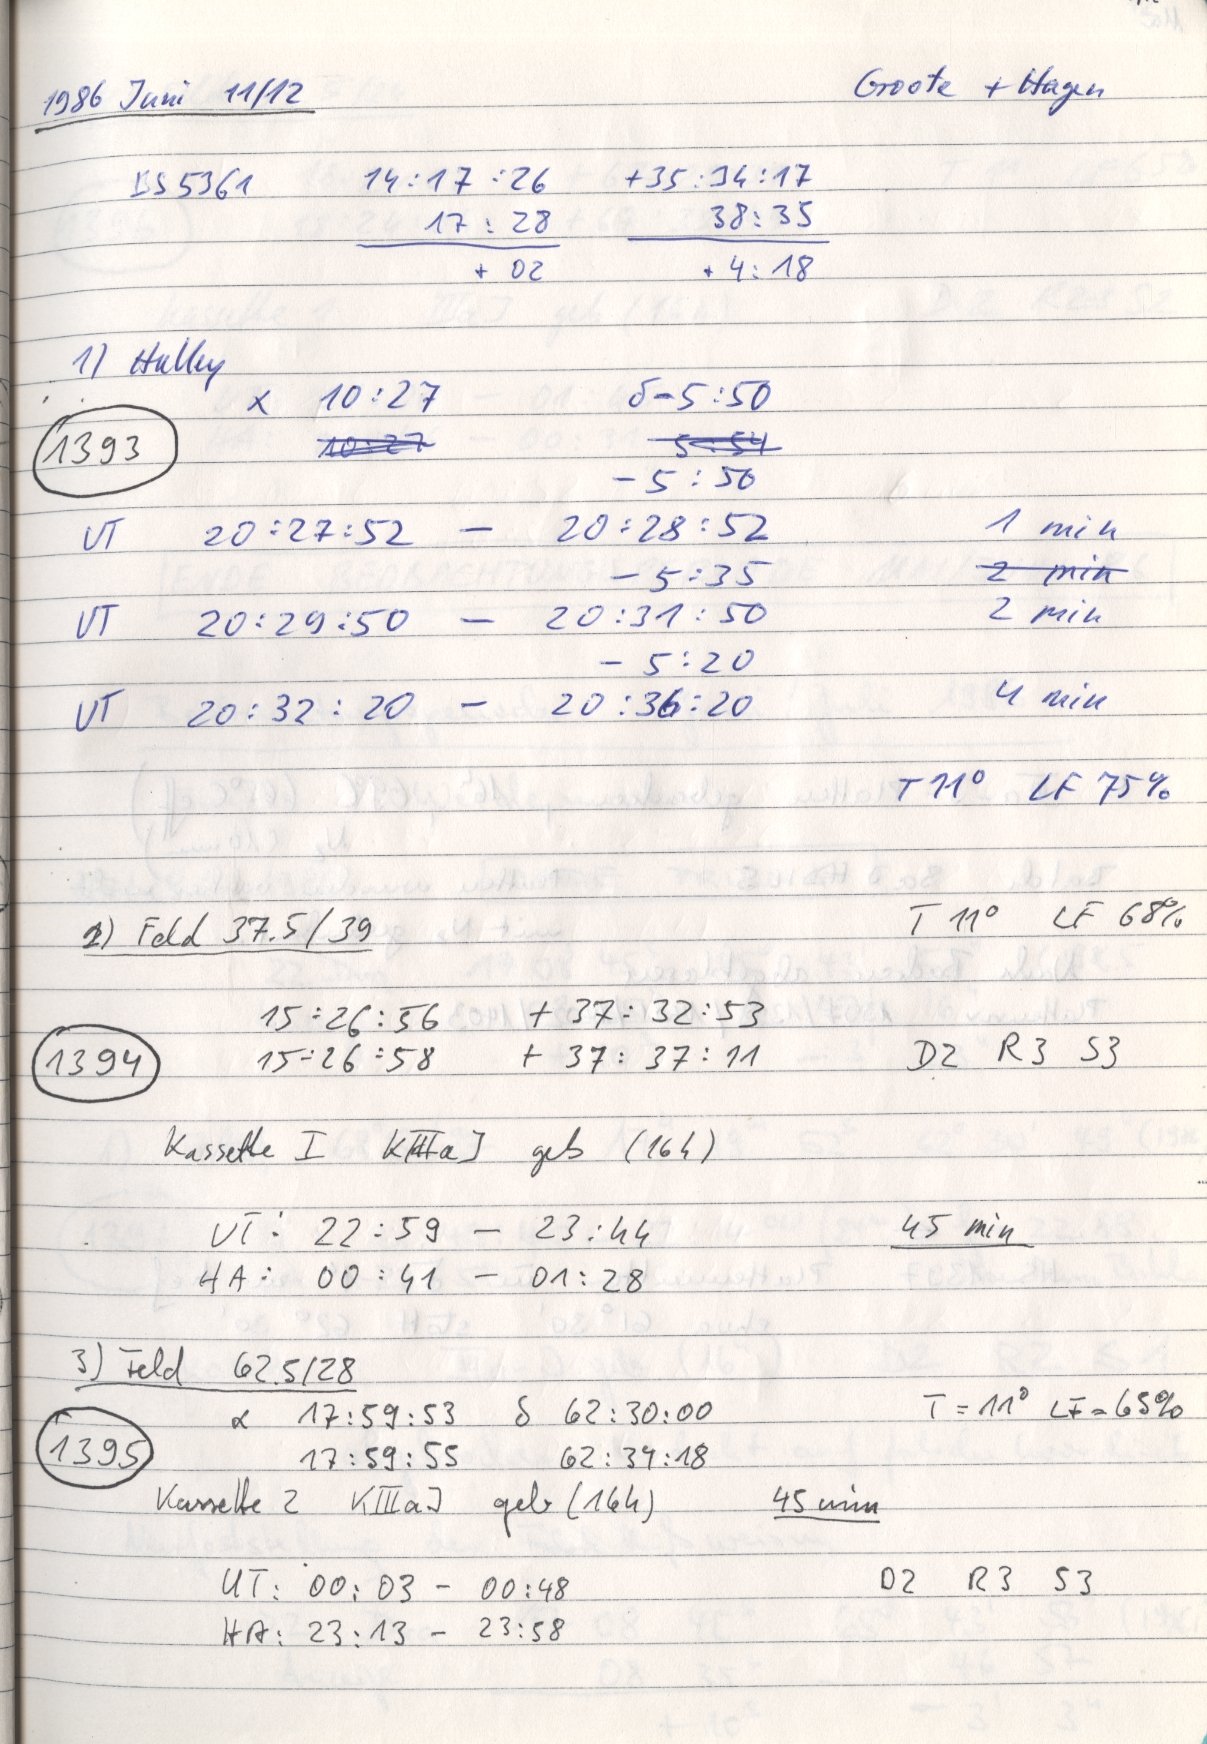 1986 Juni 11/12 Groote + Hagen
BS 5361 14:17:26 +35:34:17
17:28 38:35
+ 02 + 4:18
1) Halley
α 10:27 δ -5:50
1393 10:27 5:54
-5:50
UT 20:27:52 — 20:28:52 1 min
-5:35 2 min
UT 20:29:50 — 20:31:50 2 min
-5:20
UT 20:32:20 — 20:36:20 4 min
T 11° LF 75%
2) Feld 37.5/39 T 11° LF 68%
15:26:56 +37:32:53
1394 15:26:58 +37:37:11 D2 R3 S3
Kassette I KIIIaJ geb (16h)
UT: 22:59 — 23:44 45 min
HA: 00:41 — 01:28
3) Feld 62.5/28
α 17:59:53 δ 62:30:00 T = 11° LF = 65%
1395 17:59:55 62:34:18
Kassette 2 KIIIaJ geb (16h) 45 min
UT: 00:03 - 00:48 D2 R3 S3
HA: 23:13 - 23:58